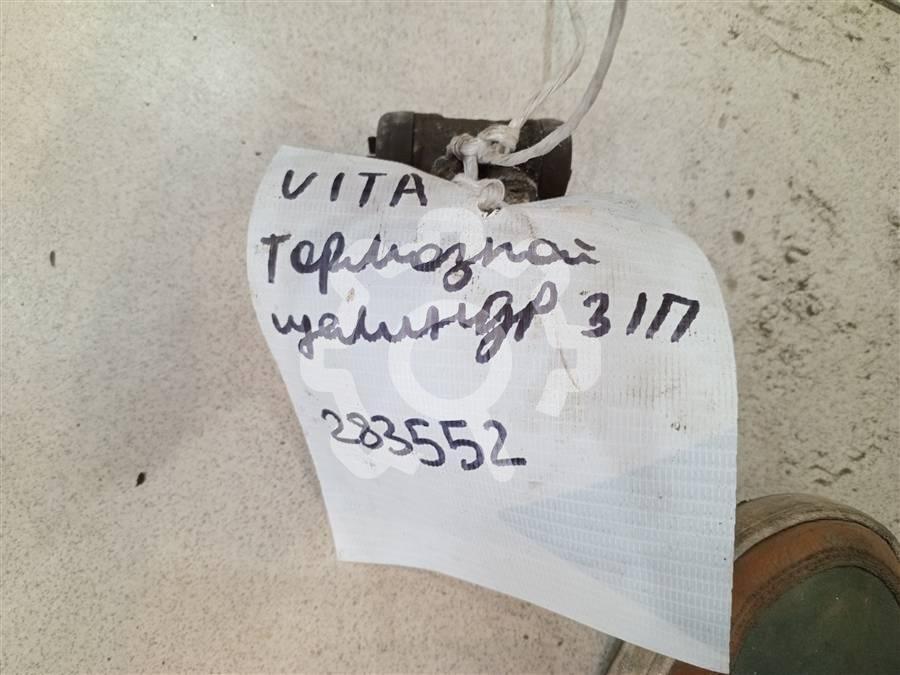 VITA
Тормозной
цилиндр З/П
283552